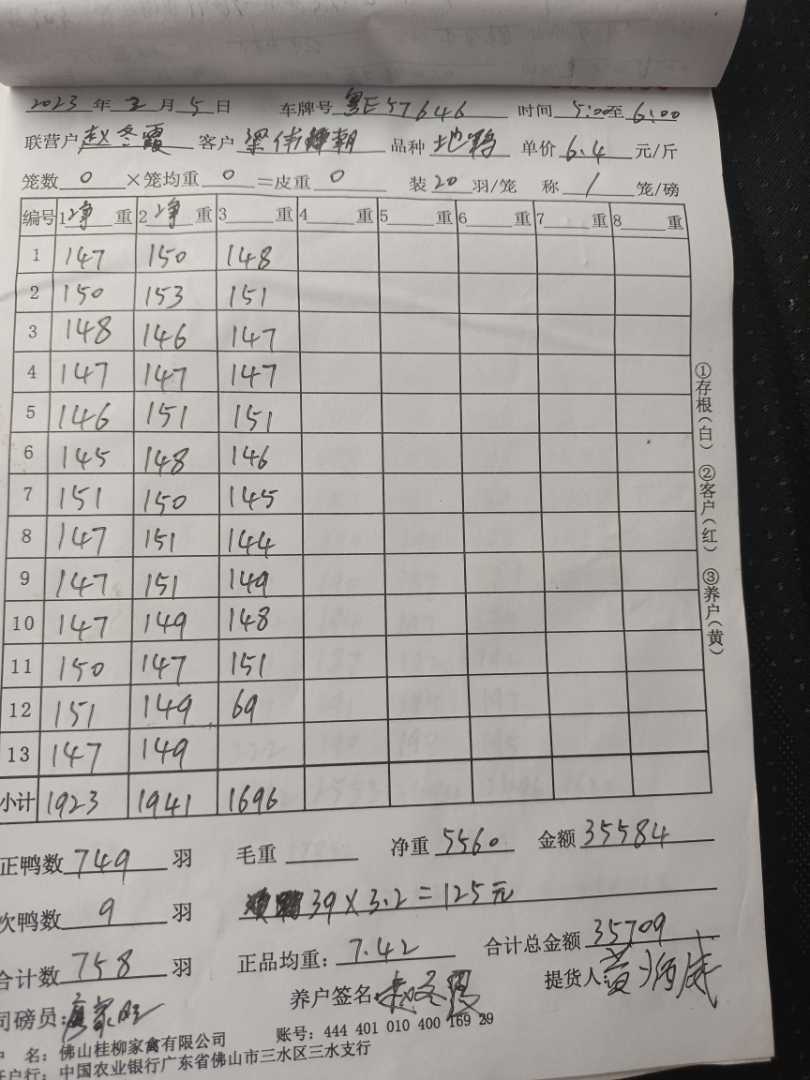 2023 年 3 月 5 日 车牌号 粤E57646 时间 5:00至 6:00
联营户 赵冬霞 客户 梁伟朝 品种 地鸭 单价 6.4 元/斤
笼数 0 ×笼均重 0 =皮重 0 装 20 羽/笼 称 1 笼/磅
编号 1 净 重 2 净 重 3 重 4 重 5 重 6 重 7 重 8 重
1 147 150 148
2 150 153 151
3 148 146 147
4 147 147 147
5 146 151 151
6 145 148 146
7 151 150 145
8 147 151 144
9 147 151 149
10 147 149 148
11 150 147 151
12 151 149 69
13 147 149
小计 1923 1941 1696
①存根(白) ②客户(红) ③养户(黄)
正鸭数 749 羽 毛重 净重 5560 金额 35584
次鸭数 9 羽 39×3.2=125元
合计数 758 羽 正品均重: 7.42 合计总金额 35709
司磅员: 养户签名: 赵冬霞 提货人: 黄
户 名: 佛山桂柳家禽有限公司 账号: 444 401 010 400 169 29
开户行: 中国农业银行广东省佛山市三水区三水支行